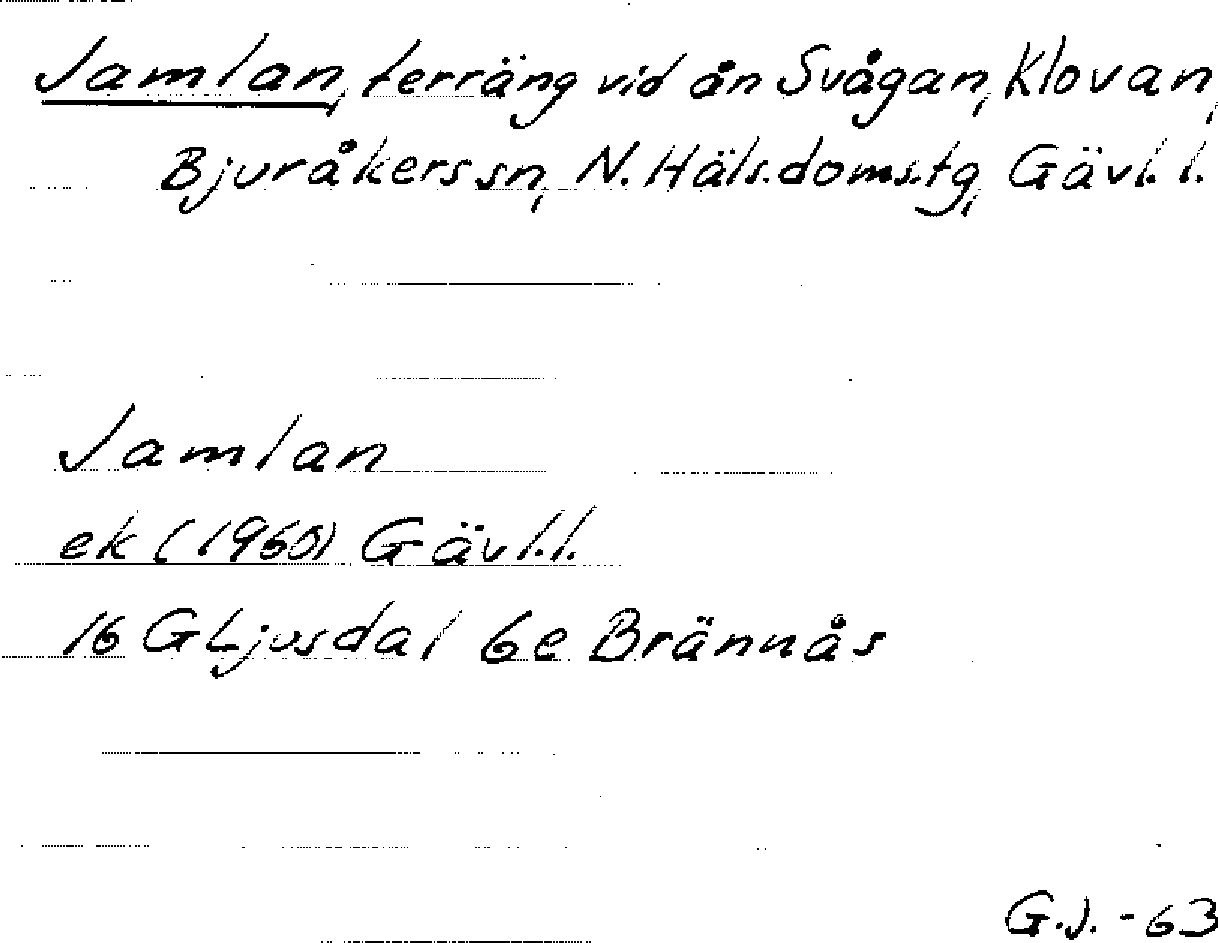 Jamlan, terräng vid ån Svågan, Klovan,
Bjuråkers sn, N. Häls. doms.tg, Gävl. l.
Jamlan
ek (1960) Gävl. l.
16 G Ljusdal 6e Brännås
G.J. -63